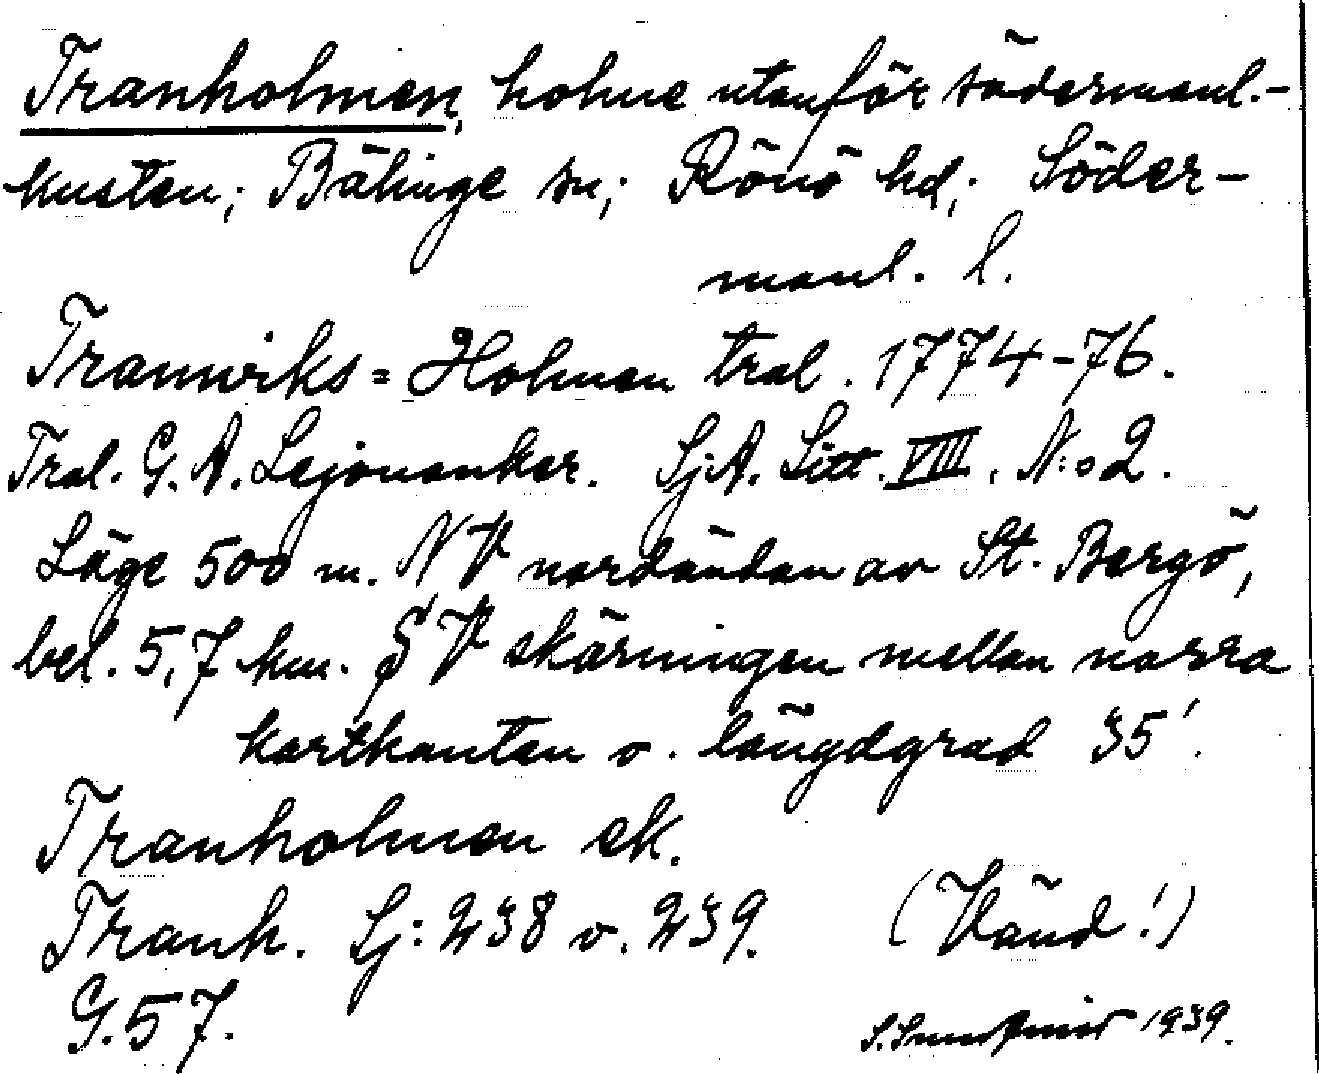 Tranholmen, holme utanför södermanl.-
kusten; Bälinge sn; Rönö hd; Söder-
manl. l.
Tranwiks=Holmen tral. 1774-76.
Tral. G. A. Lejonanker. Sj:A. Litt. VIII. N:o 2.
Läge 500 m. NV nordändan av St. Bergö,
bel. 5,7 km. SV skärningen mellan norra
kartkanten o. längdgrad 35'.
Tranholmen ek.
Tranh. Sj: 238 o. 239. (Vänd!)
G. 57.
S. 1939.